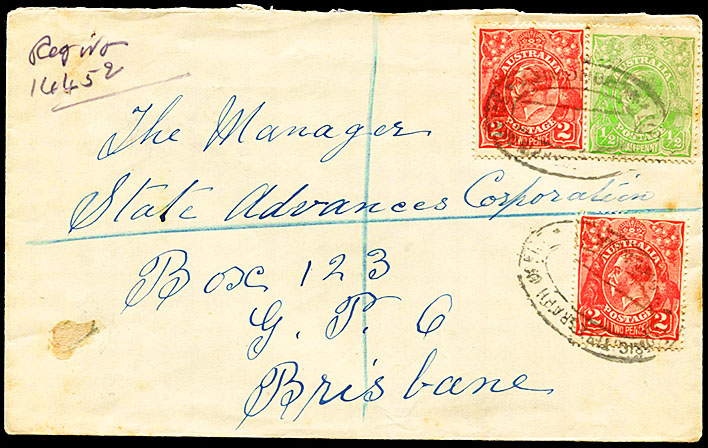 Regist
14452
The Manager
State Advances Corporation
Box 123
G. P. O
Brisbane
AUSTRALIA
2 POSTAGE 2
TWO PENCE
AUSTRALIA
½ POSTAGE ½
HALFPENNY
AUSTRALIA
2 POSTAGE 2
TWO PENCE